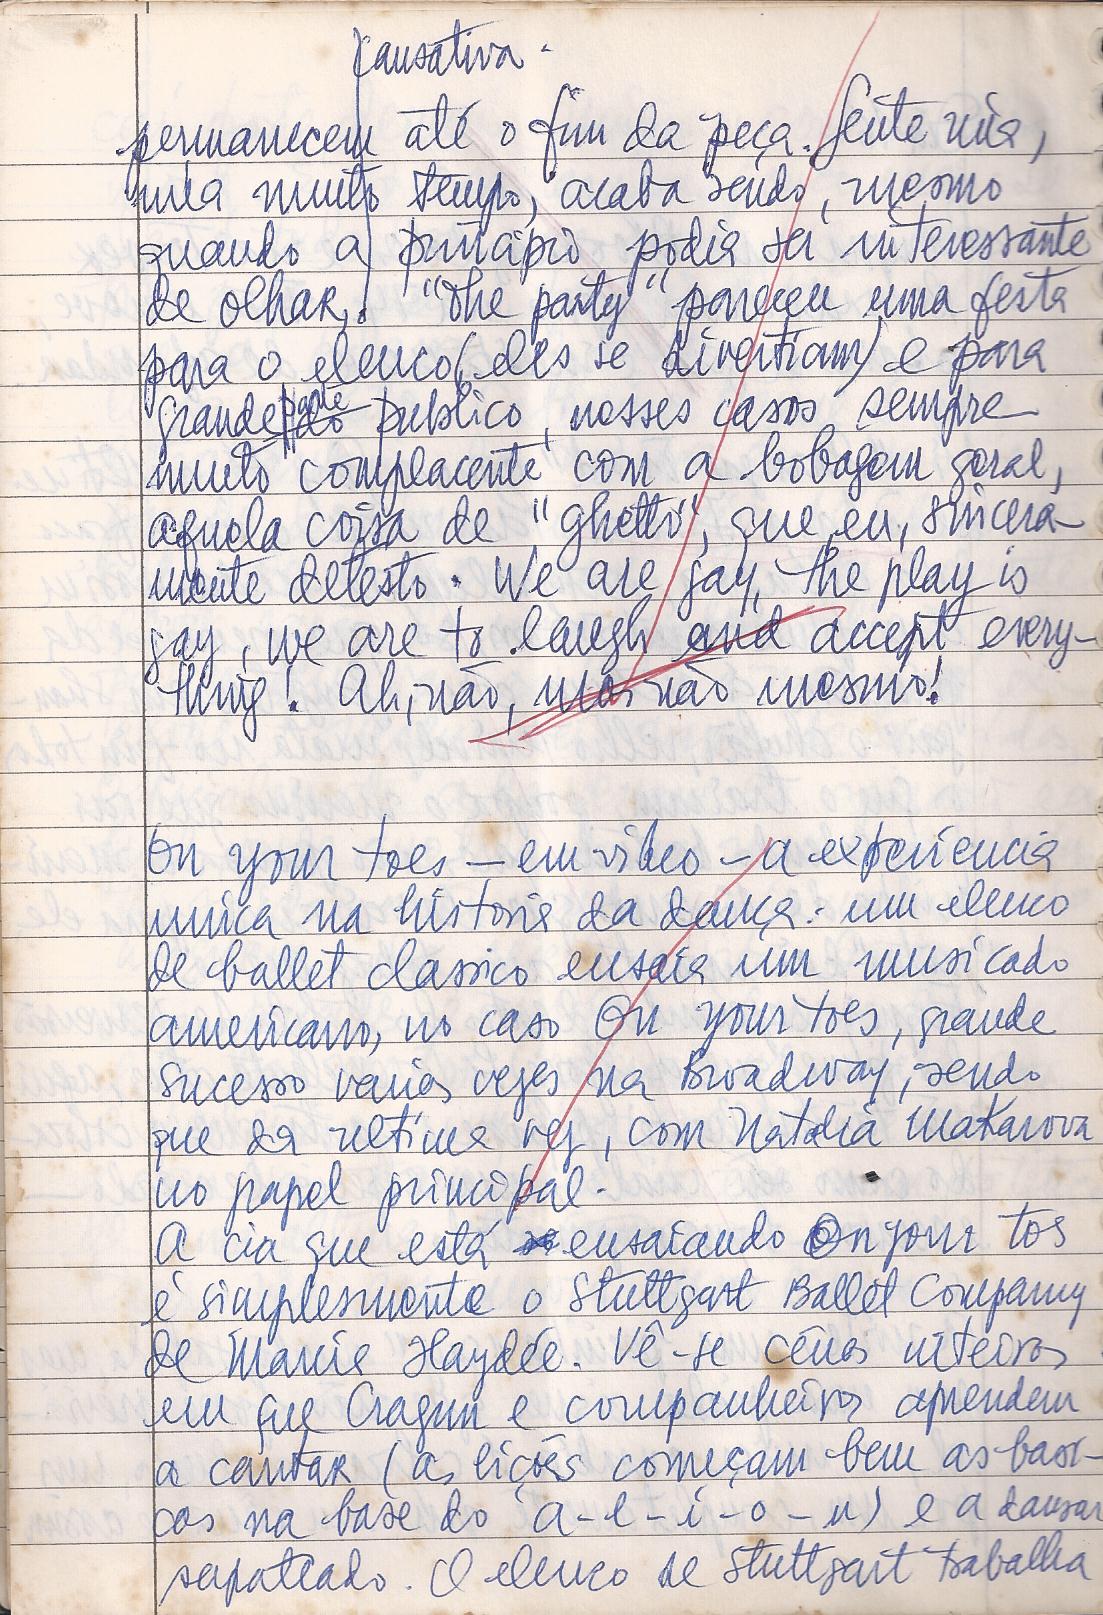 causativa.
permanecem até o fim da peça. Gente nua,
nua muito tempo, acaba sendo, mesmo
quando a principio podia ser interessante
de olhar. "The party" pareceu uma festa
para o elenco (eles se divertiam) e para
grande parte do publico, nesses casos sempre
muito complacente com a bobagem geral,
aquela coisa de "ghetto", que eu, sincera-
mente detesto. We are gay, the play is
gay, we are to laugh and accept every-
thing! Ah, não, não mesmo!
On your toes – em video – a experiencia
unica na historia da dança: um elenco
de ballet classico ensaia um musicado
americano, no caso On your toes, grande
sucesso varias vezes na Broadway, sendo
que da ultima vez, com Natalia Makarova
no papel principal.
A cia que está ensaiando On your toes
é simplesmente o Stuttgart Ballet Company
de Marcia Haydée. Vê-se cenas inteiras
em que Cragun e companheiros aprendem
a cantar (as lições começam bem as basi-
cas na base do a-e-i-o-u) e a dansar
sapateado. O elenco de Stuttgart trabalha